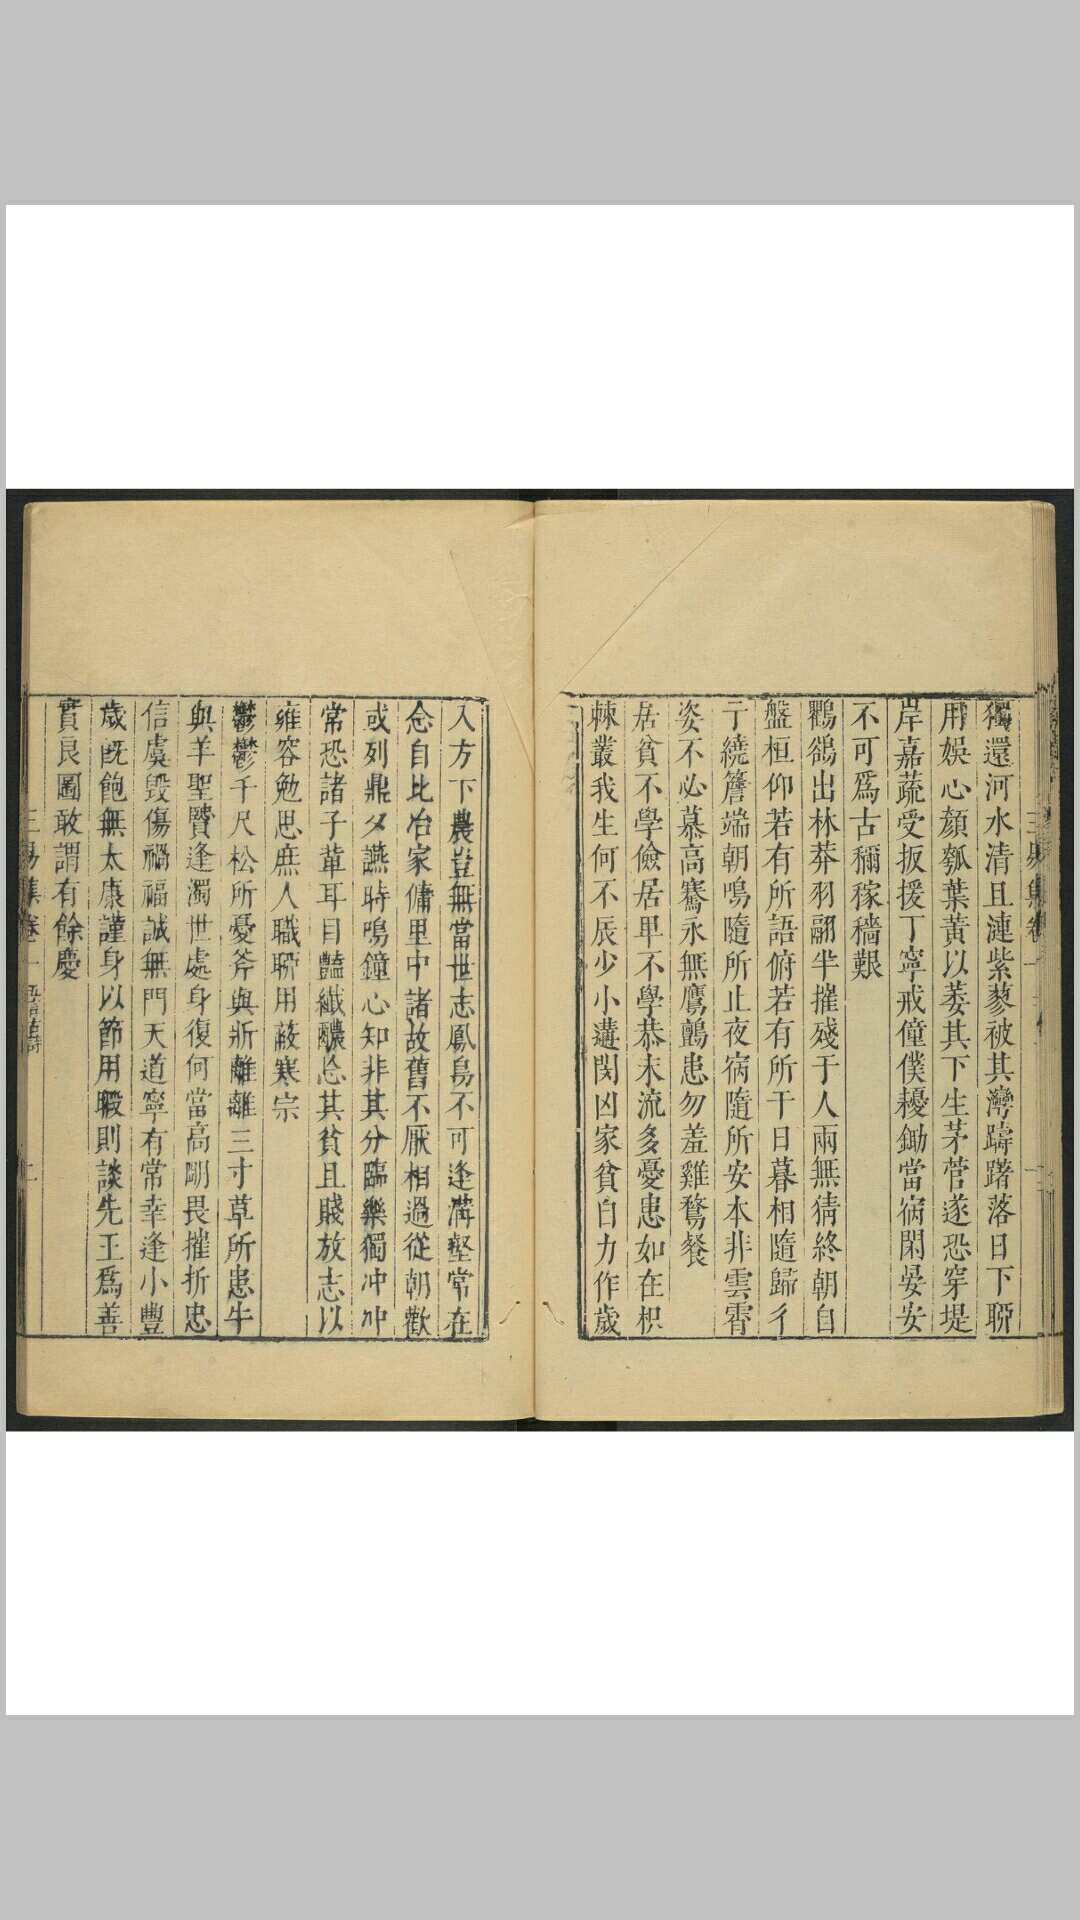 獨還河水清且漣紫蓼被其灣躊躇落日下聊
用娛心顏瓠葉黃以萎其下生茅菅遂恐穿堤
岸嘉蔬受扳援丁寧戒僮僕耰鋤當病閑晏安
不可爲古稱稼穡艱
鸜鵒出林莽羽翮半摧殘于人兩無猜終朝自
盤桓仰若有所語俯若有所干日暮相隨歸彳
亍繞簷端朝鳴隨所止夜宿隨所安本非雲霄
姿不必慕高騫永無鷹鸇患勿羞雞鶩餐
居貧不學儉居卑不學恭末流多憂患如在枳
棘叢我生何不辰少小遘閔凶家貧自力作歲
入方下農豈無當世志鳳鳥不可逢溝壑常在
念自比冶家傭里中諸故舊不厭相過從朝歡
或列鼎夕讌時鳴鐘心知非其分臨樂獨冲冲
常恐諸子輩耳目豔纖醲忘其貧且賤放志以
雍容勉思庶人職聊用蔽寒宗
鬱鬱千尺松所憂斧與斨離離三寸草所患牛
與羊聖賢逢濁世處身復何當高剛畏摧折忠
信虞毀傷禍福誠無門天道寧有常幸逢小豐
歲既飽無太康謹身以節用暇則談先王爲善
實良圖敢謂有餘慶
三易集卷一